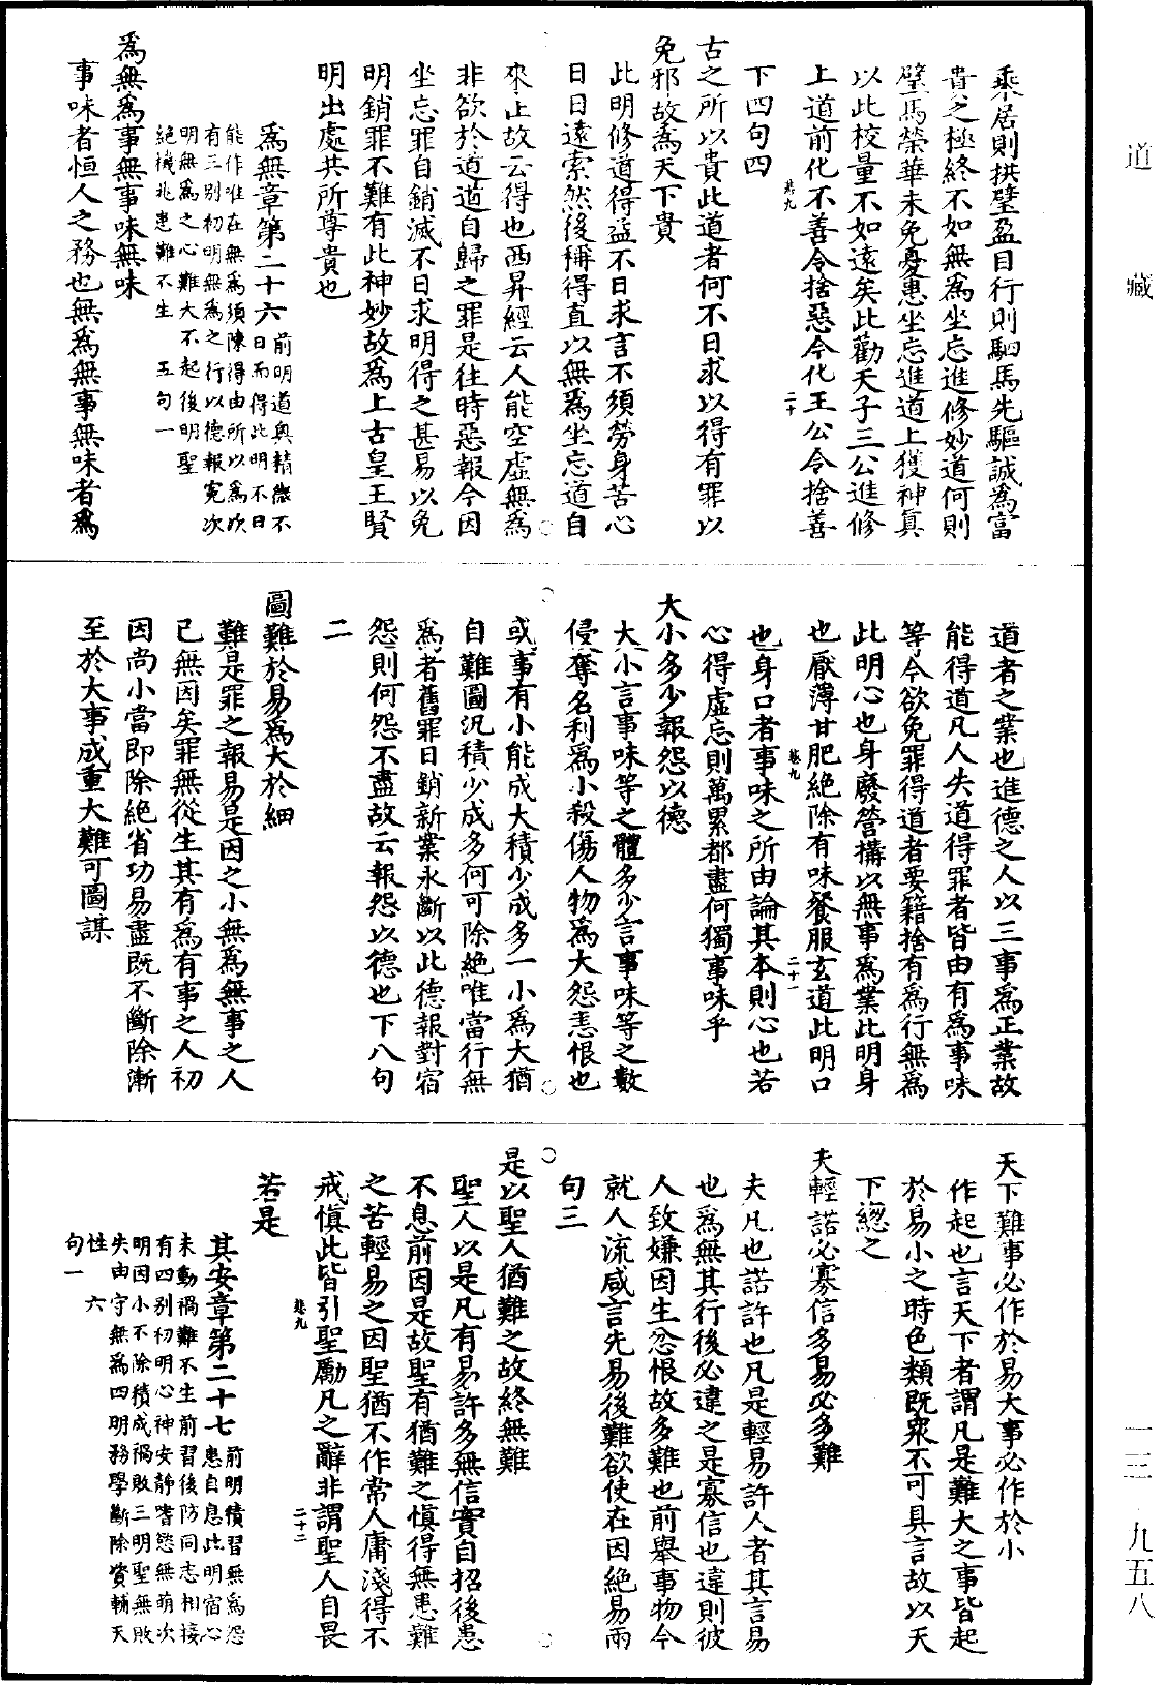 乘居則拱璧盈目行則駟馬先驅誠為富
貴之極終不如無為坐忘進修妙道何則
璧馬榮華未免憂患坐忘進道上獲神真
以此校量不如遠矣此勸天子三公進修
上道前化不善令捨惡今化王公令捨善
悲九 二十
下四句四
古之所以貴此道者何不日求以得有罪以
免邪故為天下貴
此明修道得益不日求言不須勞身苦心
日日遠索然後稱得直以無為坐忘道自
來止故云得也西昇經云人能空虛無為
非欲於道道自歸之罪是往時惡報今因
坐忘罪自銷滅不日求明得之甚易以免
明銷罪不難有此神妙故為上古皇王賢
明出處共所尊貴也
為無章第二十六
前明道奧精微不
日而得此明不日
能作唯在無為須陳得由所以為次
有三別初明無為之行以德報冤次
明無為之心難大不起後明聖
絕機兆患難不生 五句一
為無為事無事味無味
事味者恒人之務也無為無事無味者為
道者之業也進德之人以三事為正業故
能得道凡人失道得罪者皆由有為事味
等今欲免罪得道者要籍捨有為行無為
此明心也身廢營構以無事為業此明身
也厭薄甘肥絕除有味餐服玄道此明口
悲九 二十一
也身口者事味之所由論其本則心也若
心得虛忘則萬累都盡何獨事味乎
大小多少報怨以德
大小言事味等之體多少言事味等之數
侵奪名利為小殺傷人物為大怨恚恨也
或事有小能成大積少成多一小為大猶
自難圖況積少成多何可除絕唯當行無
為者舊罪日銷新業永斷以此德報對宿
怨則何怨不盡故云報怨以德也下八句
二
圖難於易為大於細
難是罪之報易是因之小無為無事之人
已無因矣罪無從生其有為有事之人初
因尚小當即除絕省功易盡既不斷除漸
至於大事成重大難可圖謀
天下難事必作於易大事必作於小
作起也言天下者謂凡是難大之事皆起
於易小之時色類既眾不可具言故以天
下總之
夫輕諾必寡信多易必多難
夫凡也諾許也凡是輕易許人者其言易
也為無其行後必違之是寡信也違則彼
人致嫌因生忿恨故多難也前舉事物今
就人流咸言先易後難欲使在因絕易兩
句三
是以聖人猶難之故終無難
聖人以是凡有易許多無信實自招後患
不息前因是故聖有猶難之慎得無患難
之苦輕易之因聖猶不作常人庸淺得不
戒慎此皆引聖勵凡之辭非謂聖人自畏
悲九 二十二
若是
其安章第二十七
前明積習無為怨
患自息此明宿心
未動禍難不生前習後防同志相接
有四別初明心神安靜嗜慾無萌次
明因小不除積成禍敗三明聖無敗
失由守無為四明務學斷除資輔天
性 六
句一
道藏
一三 九五八